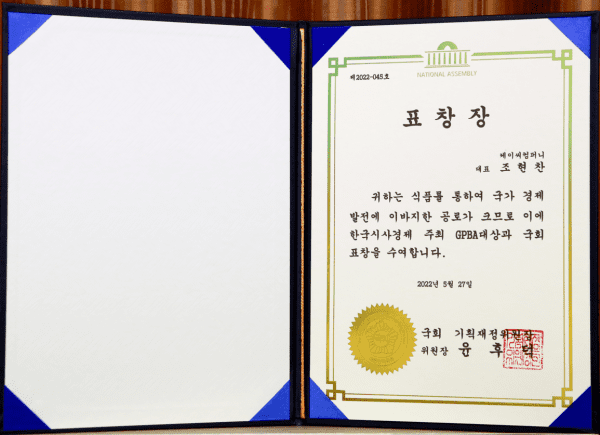 제2022-045호
NATIONAL ASSEMBLY
표 창 장
제이씨컴퍼니
대표 조 현 찬
귀하는 식품를 통하여 국가 경제
발전에 이바지한 공로가 크므로 이에
한국시사경제 주최 GPBA대상과 국회
표창을 수여합니다.
2022년 5월 27일
국회 기획재정위원장
위원장 윤 후 덕